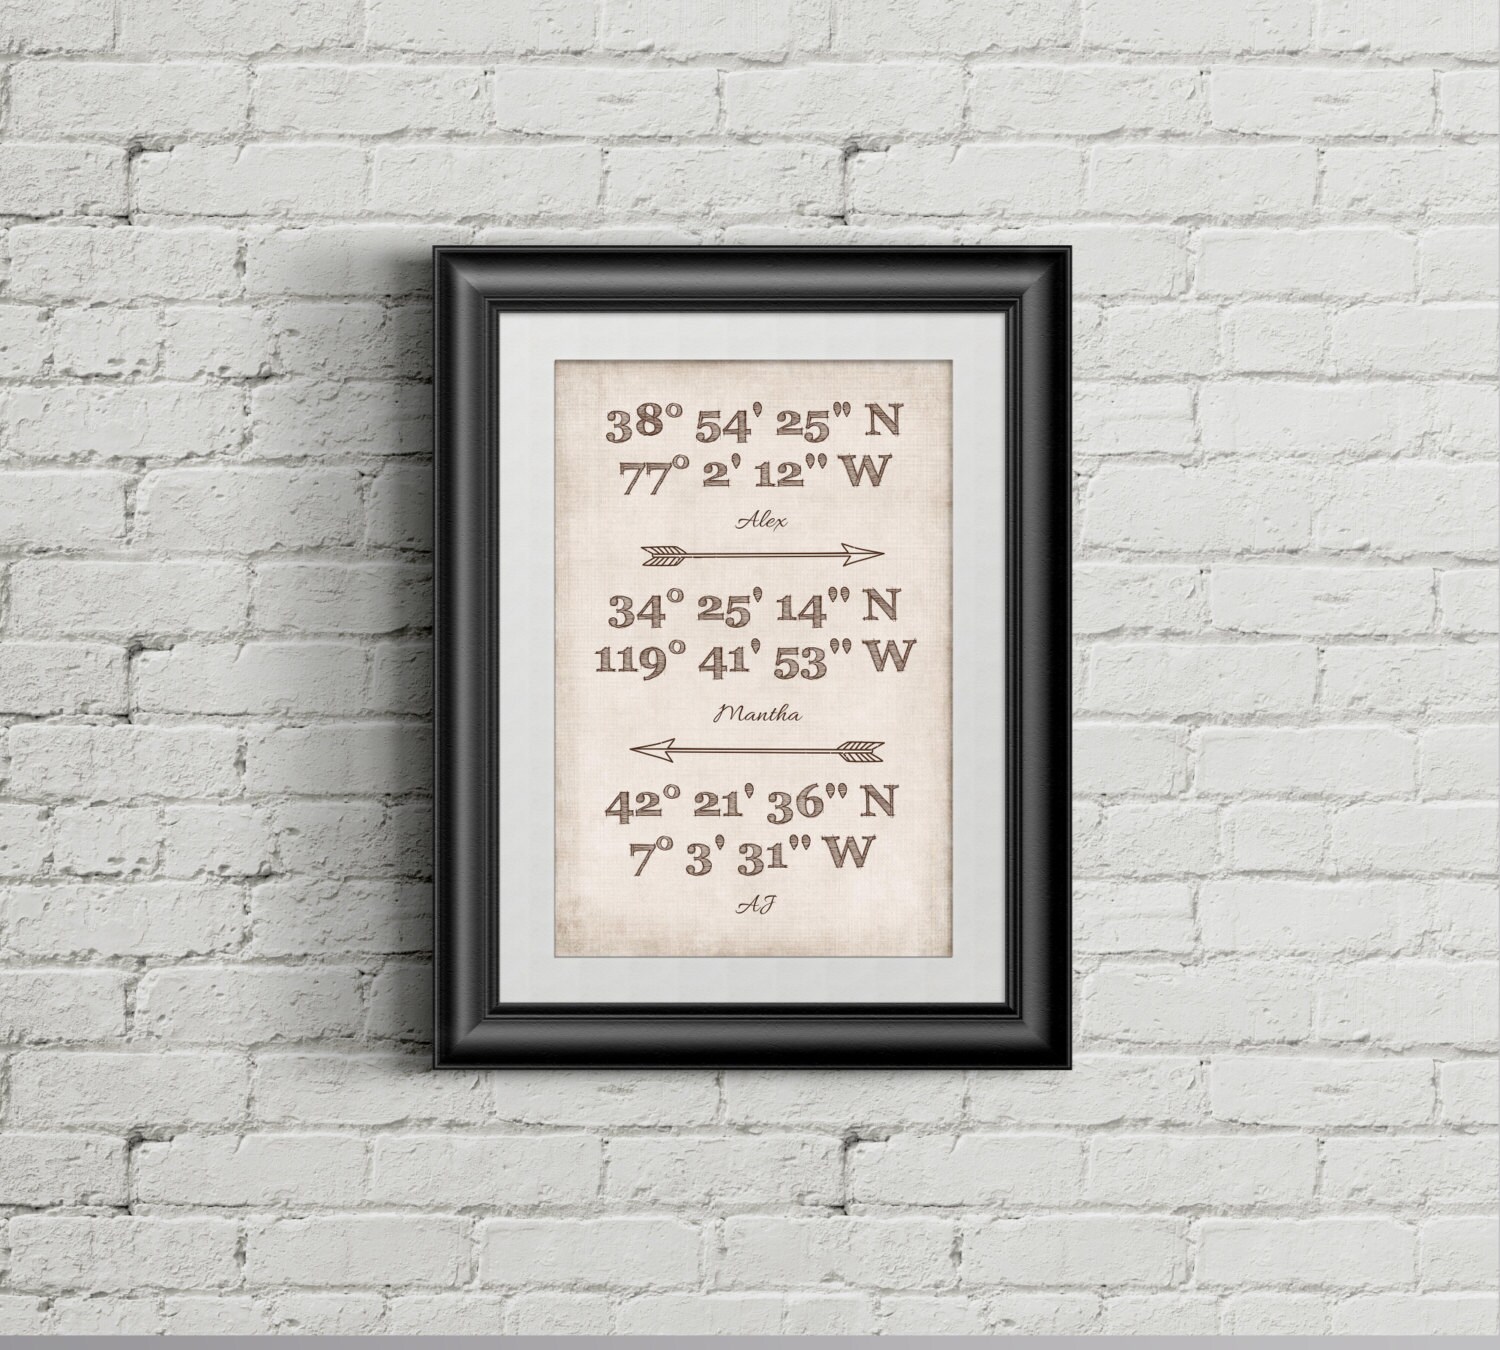 38° 54' 25" N
77° 2' 12" W
Alex
34° 25' 14" N
119° 41' 53" W
Mantha
42° 21' 36" N
7° 3' 31" W
AJ